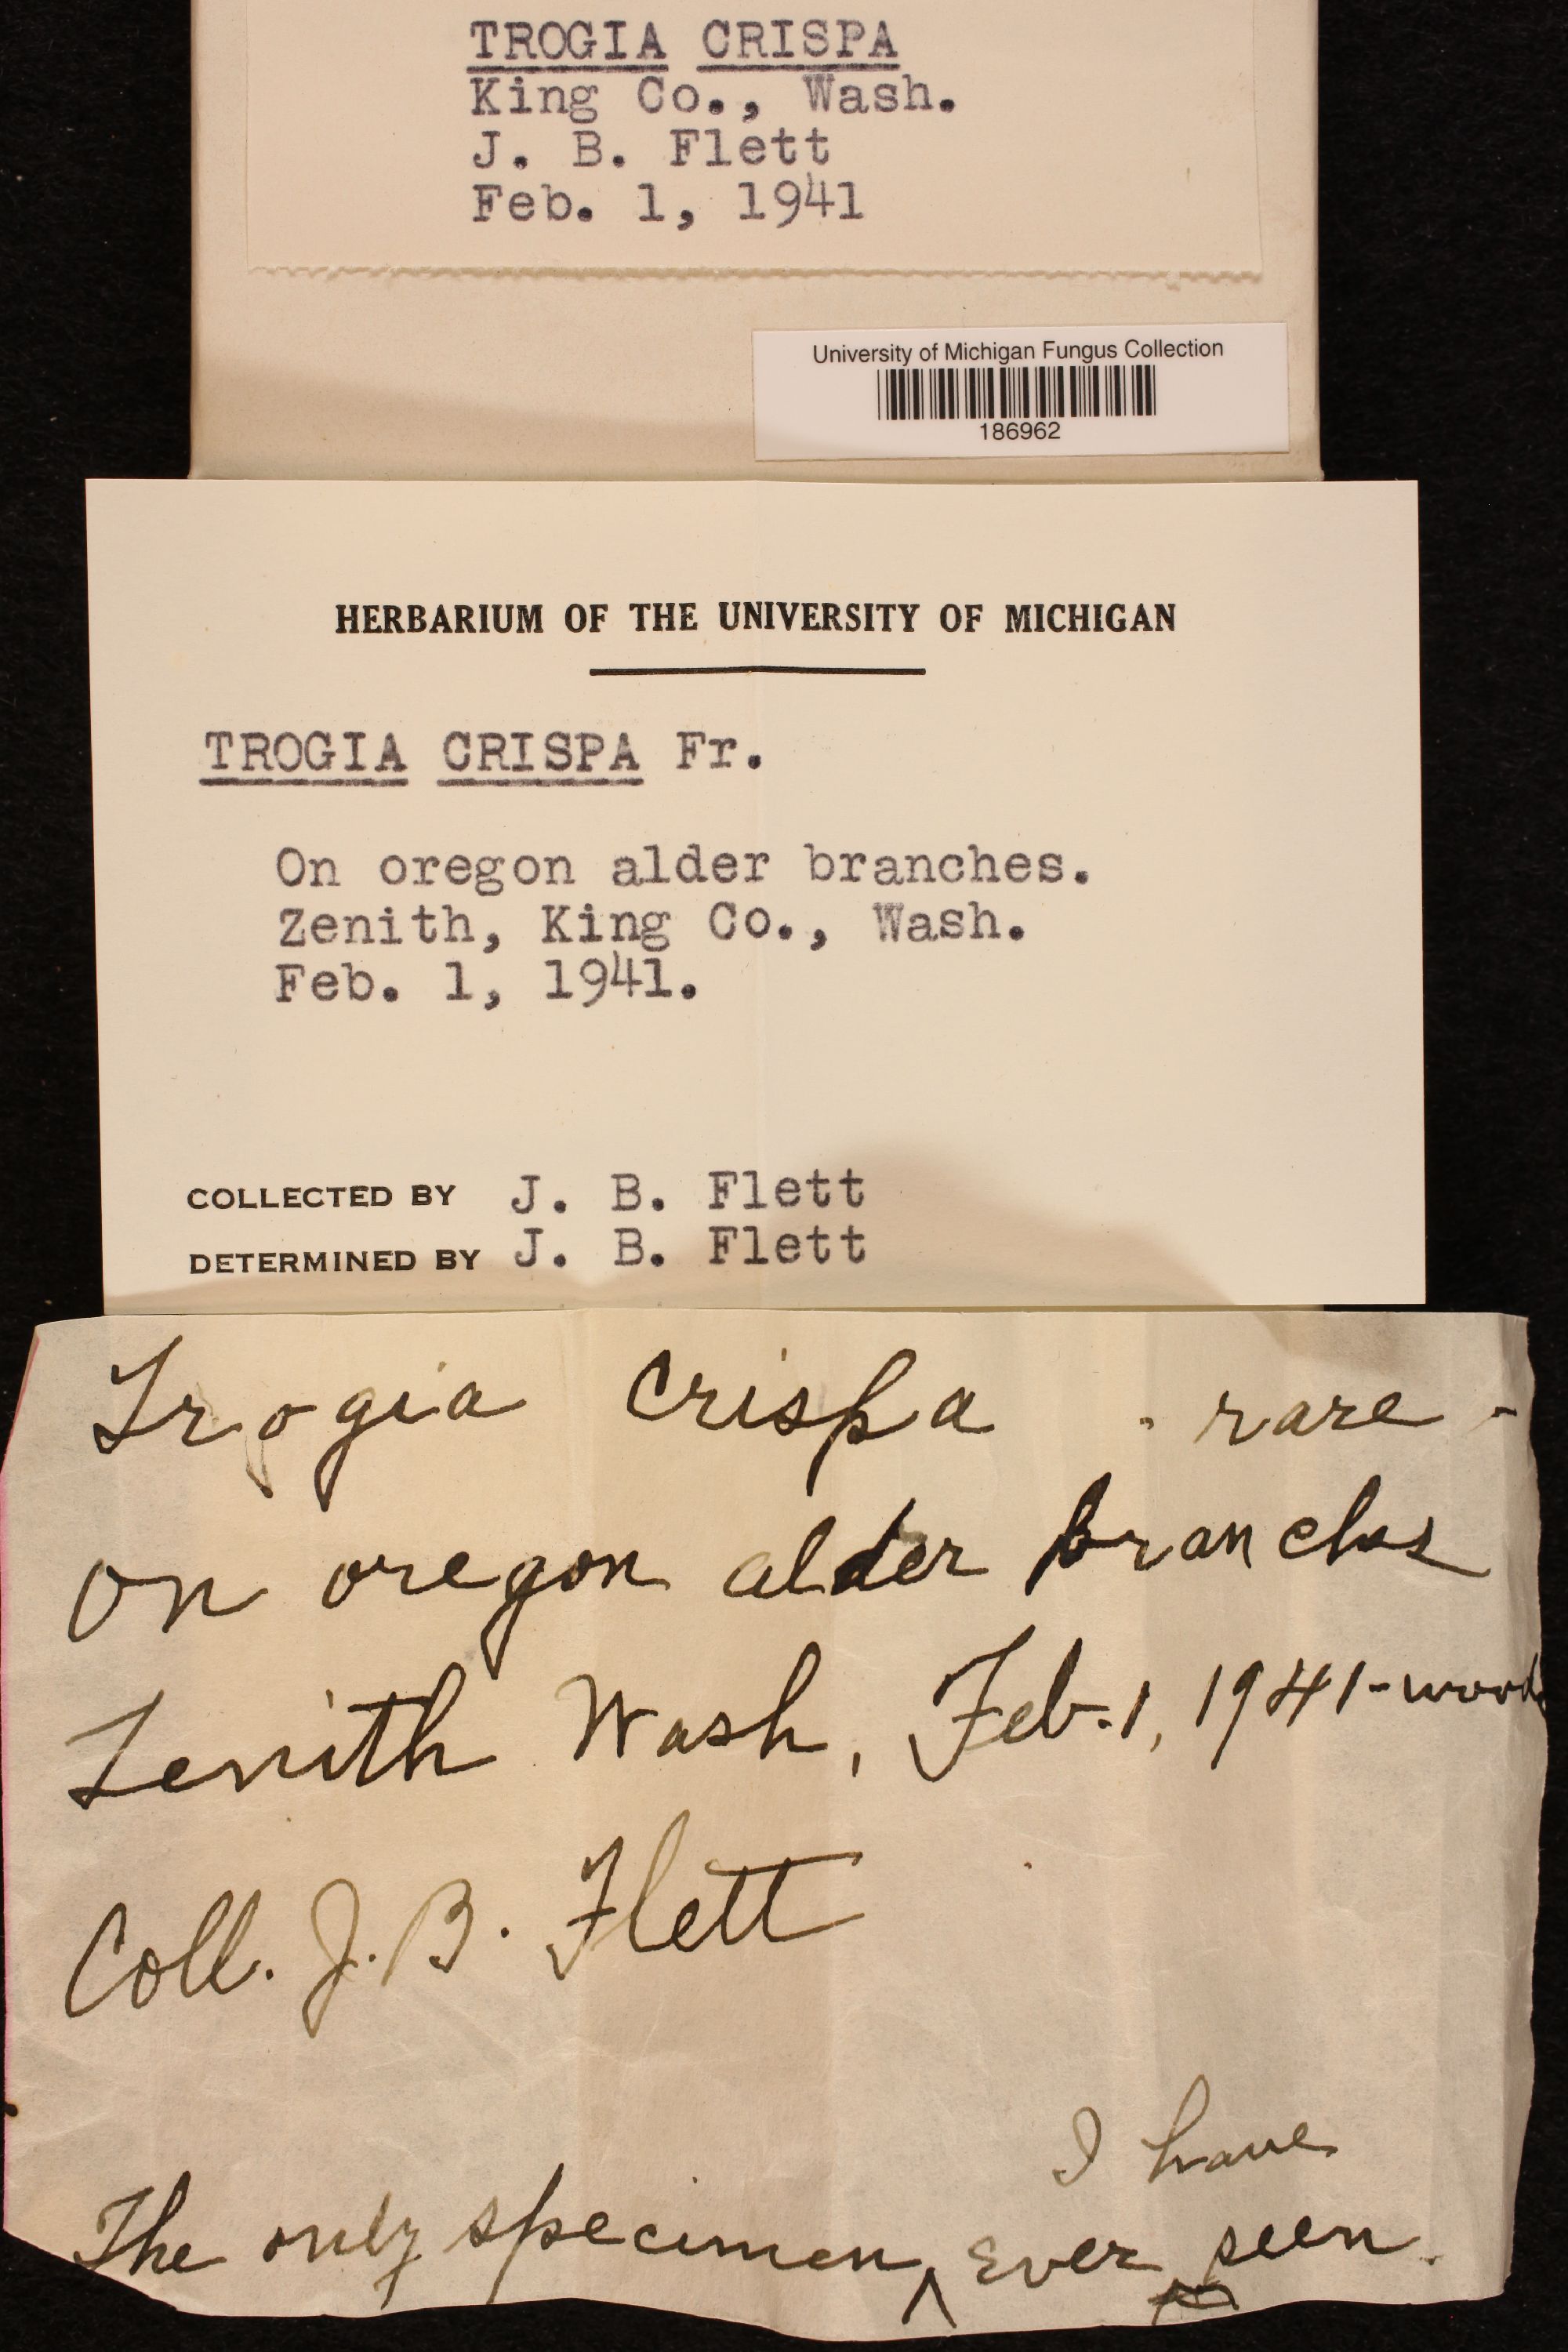 TROGIA CRISPA
King Co., Wash.
J. B. Flett
Feb. 1, 1941
University of Michigan Fungus Collection
186962
HERBARIUM OF THE UNIVERSITY OF MICHIGAN
TROGIA CRISPA Fr.
On oregon alder branches.
Zenith, King Co., Wash.
Feb. 1, 1941.
COLLECTED BY J. B. Flett
DETERMINED BY J. B. Flett
Trogia Crispa - rare -
On oregon alder branches
Zenith Wash, Feb. 1, 1941 - woods
Coll. J. B. Flett
I have
The only specimen ^ ever seen.